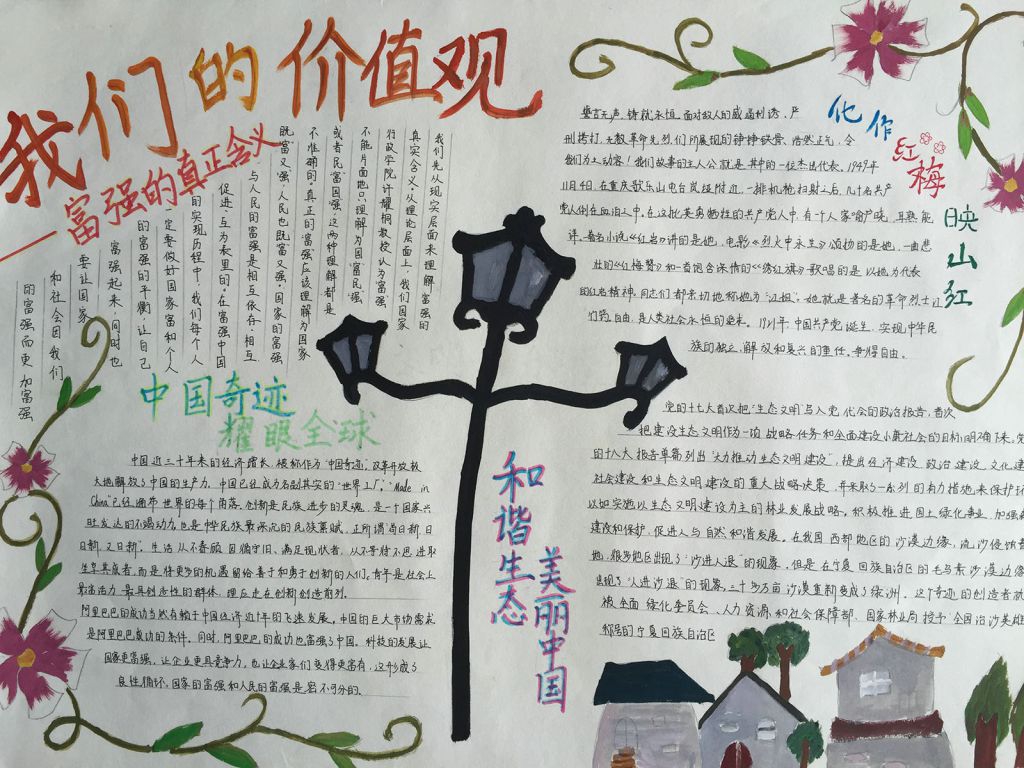 我们的价值观
——富强的真正含义
我们先从现实层面来理解富强的
真实含义。从理论层面上,我们国家
行政学院许耀桐教授认为富强
不能片面地只理解为国富民强,
或者民富国强,这两种理解都是
不准确的。真正的富强应该理解为国家
既富又强,人民也既富又强。国家的富强
与人民的富强是相互依存、相互
促进、互为表里的。在富强中国
的实现历程中,我们每个人
一定要做好国家富和个人
的富强的平衡,让自己
富强起来,同时也
要让国家
和社会因我们
的富强而更加富强
中国奇迹
耀眼全球
中国近三十年来的经济增长,被称作为“中国奇迹”,改革开放极
大地解放了中国的生产力,中国已经成为名副其实的“世界工厂”,“Made in
China”已经遍布世界的每个角落。创新是民族进步的灵魂,是一个国家兴
旺发达的不竭动力,也是中华民族最深沉的民族禀赋,正所谓“苟日新,日
日新,又日新”。生活从不眷顾因循守旧、满足现状者,从不等待不思进取
坐享其成者,而是将更多的机遇留给善于和勇于创新的人们。青年是社会上
最富活力、最具创造性的群体,理应走在创新创造前列。
阿里巴巴的成功当然有赖于中国经济近10年的飞速发展,中国的巨大市场需求
是阿里巴巴成功的条件。同时,阿里巴巴的成功也富强了中国。科技的发展让
国家更富强,让企业更具竞争力,也让企业家们变得更富有,这形成了
良性循环,国家的富强和人民的富强是密不可分的。
和谐生态
美丽中国
化作
红梅
映山红
誓言无声,铸就永恒。面对敌人的威逼利诱、严
刑拷打,无数革命先烈们所展现的铮铮铁骨、浩然正气,令
他们为之动容!我们故事的主人公就是其中的一位杰出代表。1949年
11月4日,在重庆歌乐山电台岚垭附近,一排机枪扫射之后,几十名共产
党人倒在血泊之中。在这批英勇牺牲的共产党人中,有一个人家喻户晓、耳熟能
详。著名小说《红岩》讲的是她,电影《烈火中永生》颂扬的是她,一曲悲
壮的《红梅赞》和一首饱含深情的《绣红旗》歌唱的是以她为代表
的红岩精神,同志们都亲切地称她为“江姐”。她就是著名的革命烈士江
竹筠。自由,是人类社会永恒的追求。1921年,中国共产党诞生,实现中华民
族的独立、解放和复兴的重任,争得自由。
党的十七大首次把“生态文明”写入党代会的政治报告,首次
把建设生态文明作为一项战略任务和全面建设小康社会的目标明确下来。党
的十八大报告单篇列出“大力推动生态文明建设”,提出经济建设、政治建设、文化建
社会建设和生态文明建设的重大战略决策,并采取了一系列的有力措施来保护环
以如实施以生态文明建设为主的林业发展战略,积极推进国土绿化事业,加强森
建设和保护,促进人与自然和谐发展。在我国西部地区的沙漠边缘,流沙侵蚀着
地,很多地区出现了“沙进人退”的现象,但是在宁夏回族自治区的毛乌素沙漠边缘
出现了“人进沙退”的现象,三十多万亩沙漠重新变成了绿洲。这个奇迹的创造者就
被全国绿化委员会、人力资源和社会保障部、国家林业局授予“全国治沙英雄
称号的宁夏回族自治区